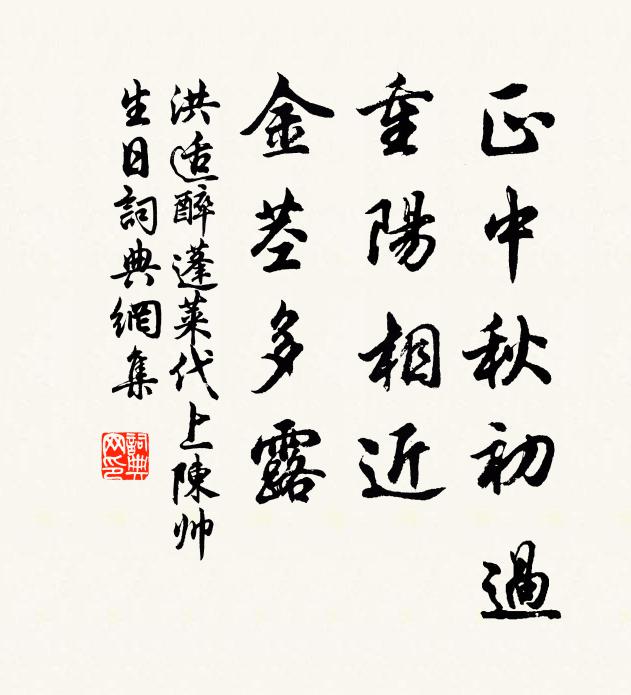 正中秋初過
重陽相近
金莖多露
洪适醉蓬萊代上陳帅
生日詞典網集
詞典
网印